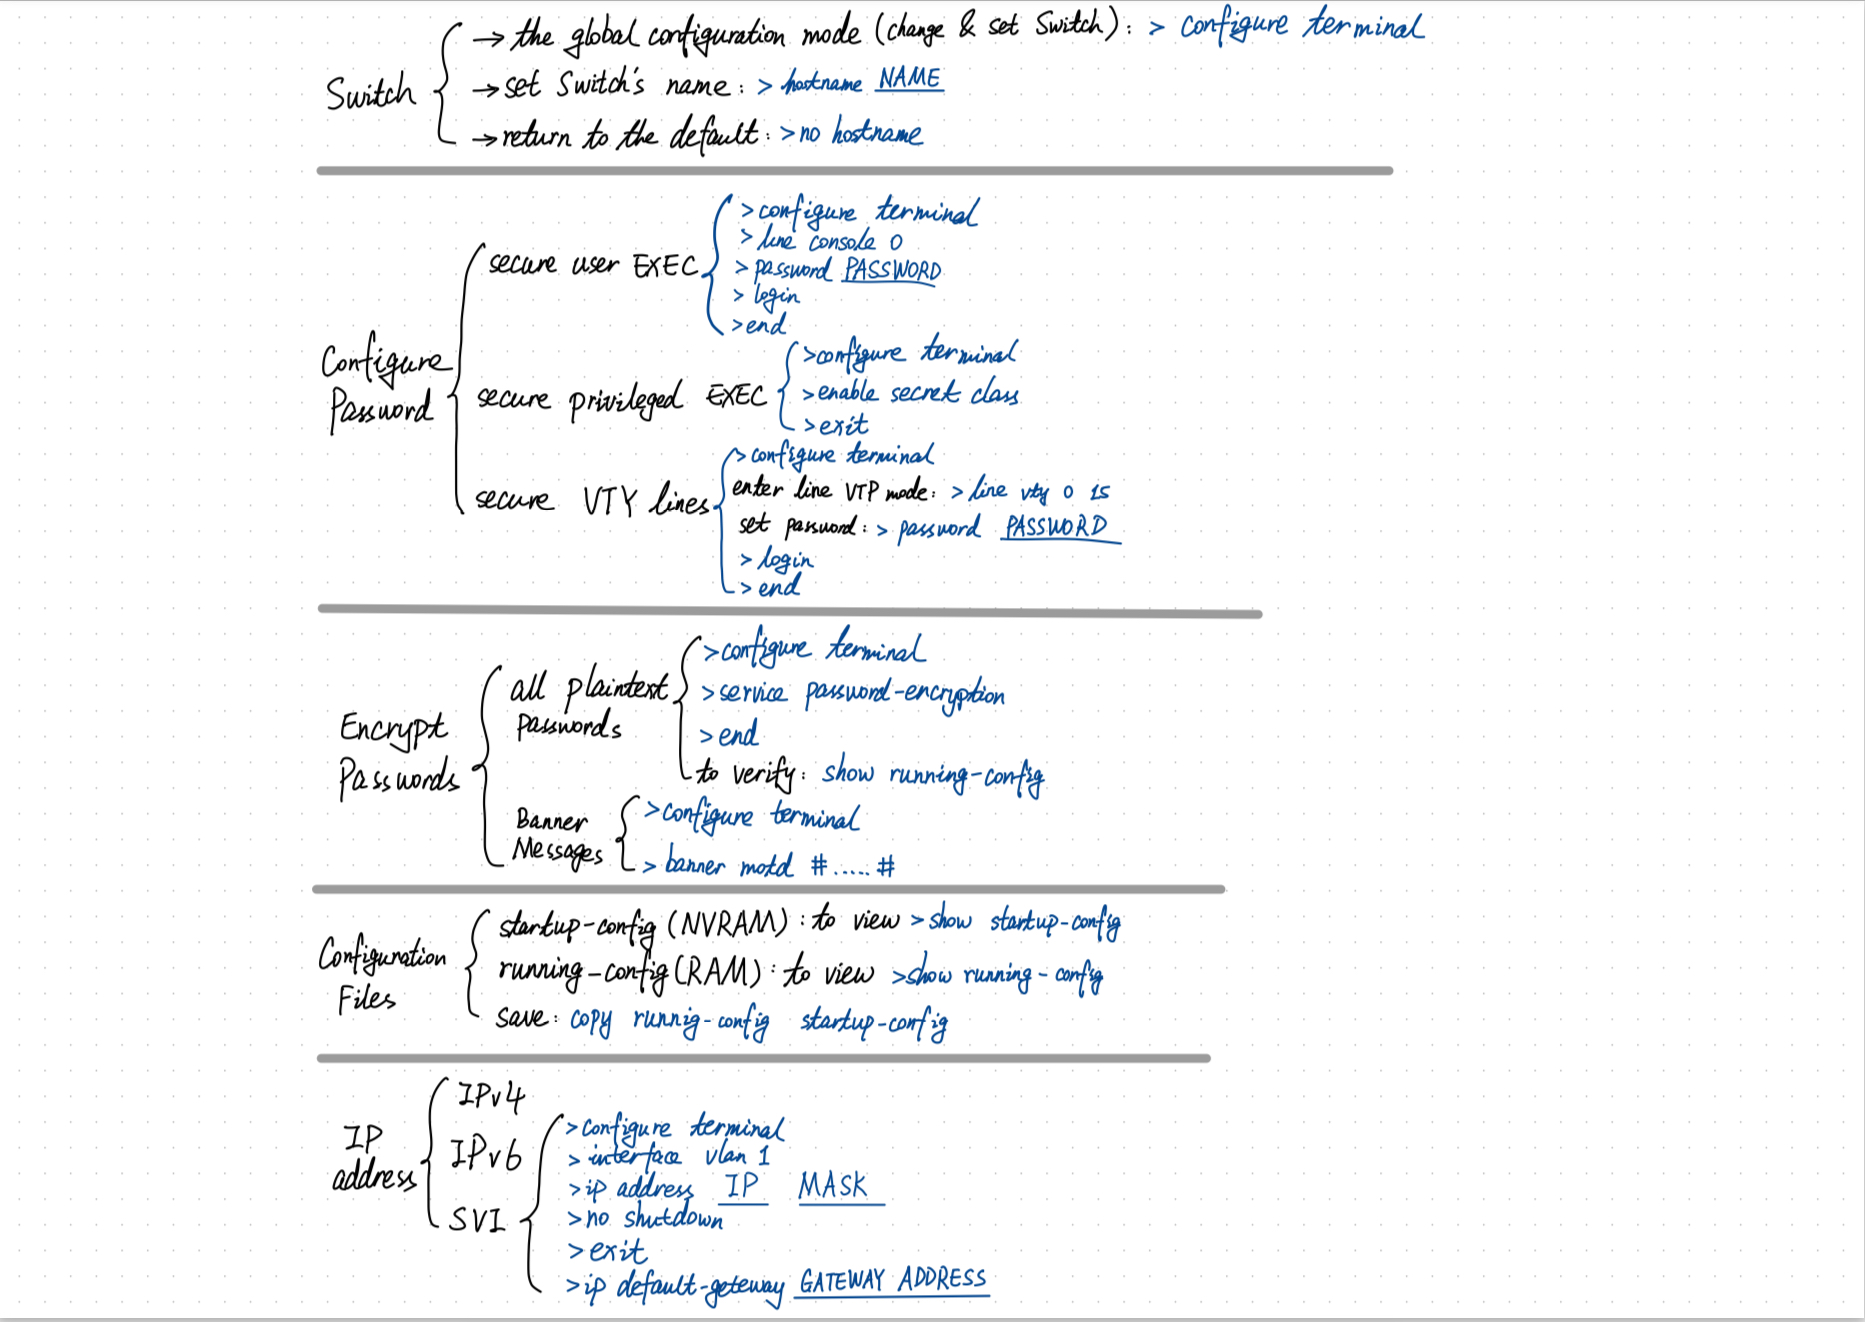 Switch
→ the global configuration mode (change & set Switch): > configure terminal
→ set Switch's name: > hostname NAME
→ return to the default: > no hostname
Configure
Password
secure user EXEC
> configure terminal
> line console 0
> password PASSWORD
> login
> end
secure privileged EXEC
> configure terminal
> enable secret class
> exit
secure VTY lines
> configure terminal
enter line VTP mode: > line vty 0 15
set password: > password PASSWORD
> login
> end
Encrypt
Passwords
all plaintext
passwords
> configure terminal
> service password-encryption
> end
to verify: show running-config
Banner
Messages
> configure terminal
> banner motd #.....#
Configuration
Files
startup-config (NVRAM): to view > show startup-config
running-config (RAM): to view > show running-config
save: copy runnig-config startup-config
IP
address
IPv4
IPv6
SVI
> configure terminal
> interface vlan 1
> ip address IP MASK
> no shutdown
> exit
> ip default-geteway GATEWAY ADDRESS